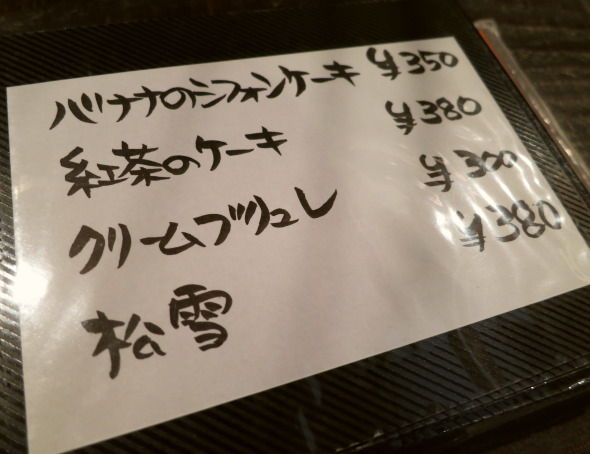 バナナのシフォンケーキ ¥350
紅茶のケーキ ¥380
クリームブリュレ ¥300
松雪 ¥380